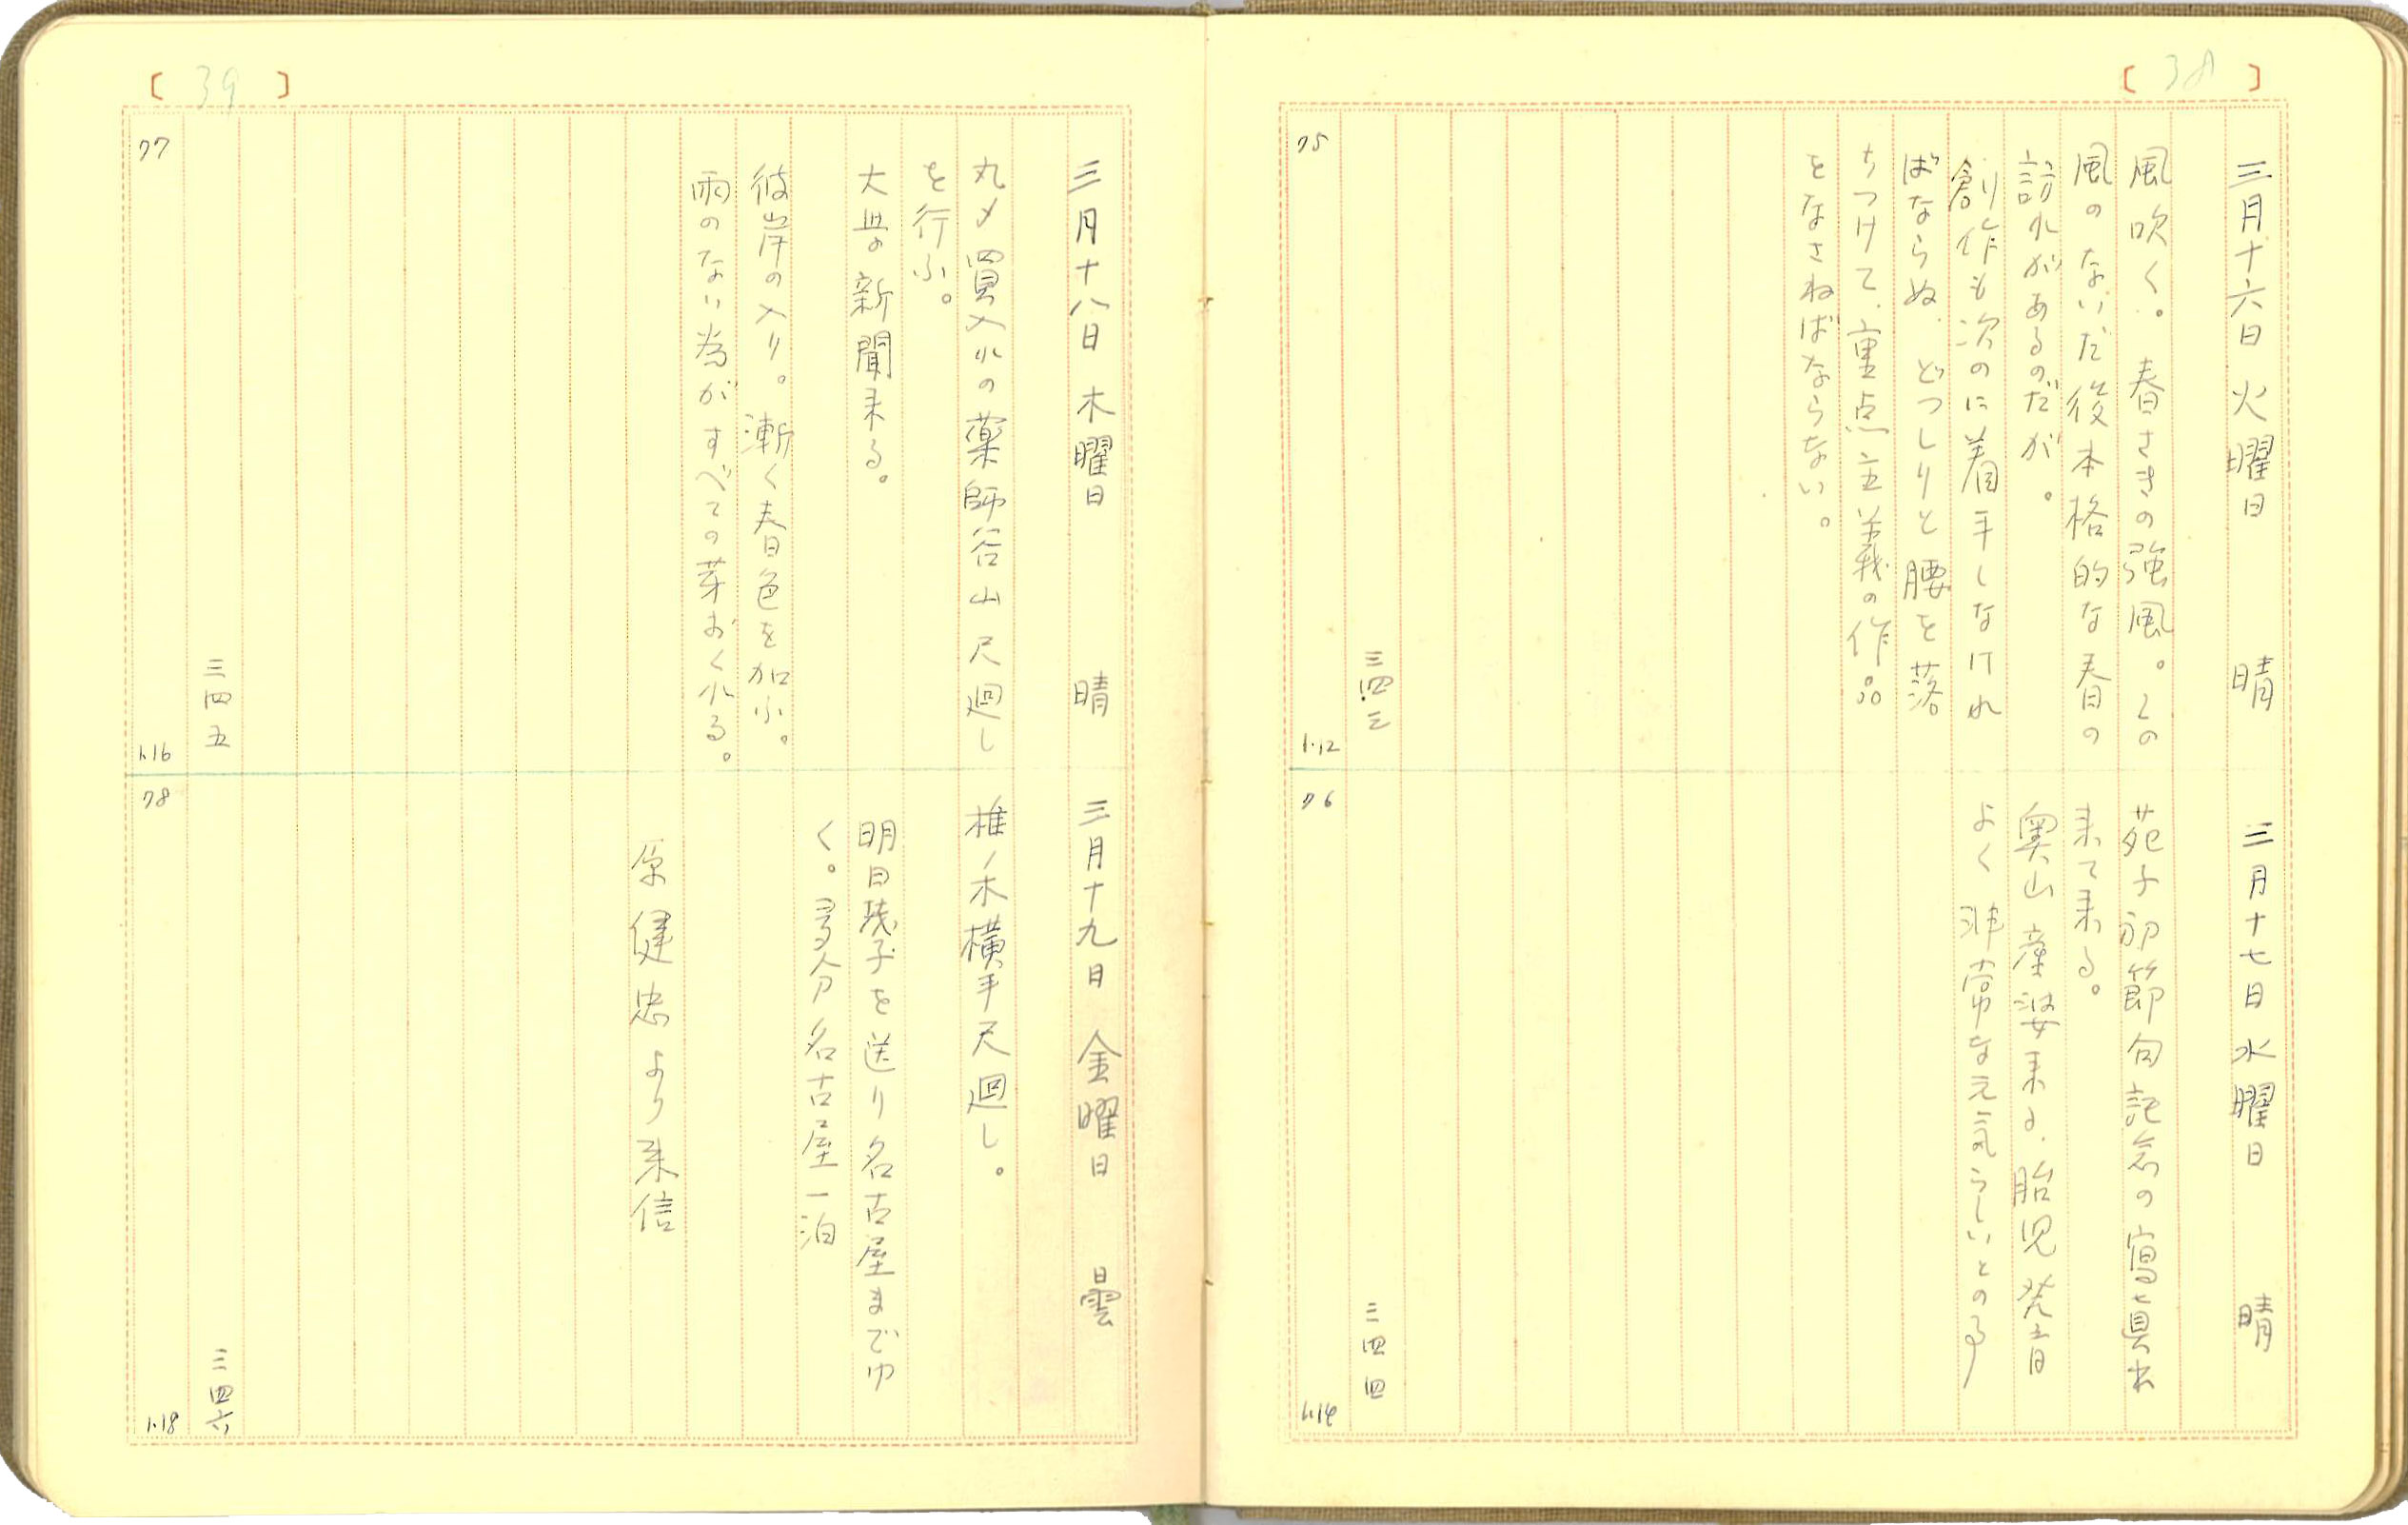 [ 38 ]
三月十六日 火曜日 晴
風吹く。春さきの強風。この
風のないだ後本格的な春の
訪れがあるのだが。
創作も次のに着手しなけれ
ばならぬ、どつしりと腰を落
ちつけて、重点主義の作品
をなさねばならない。
三四三
75
1.12
三月十七日 水曜日 晴
苑子初節句記念の寫真出
来て来る。
奥山産婆来る、胎児発育
よく非常な元気らしいとの事
三四四
76
1.14
[ 39 ]
三月十八日 木曜日 晴
丸〆買入れの薬師谷山尺廻し
を行ふ。
大毎の新聞来る。
彼岸の入り。漸く春色を加ふ。
雨のない為がすべての芽おくれる。
三四五
77
1.16
三月十九日 金曜日 曇
椎ノ木横手尺廻し。
明日 子を送り名古屋までゆ
く。多分名古屋一泊
原健忠より来信
三四六
78
1.18